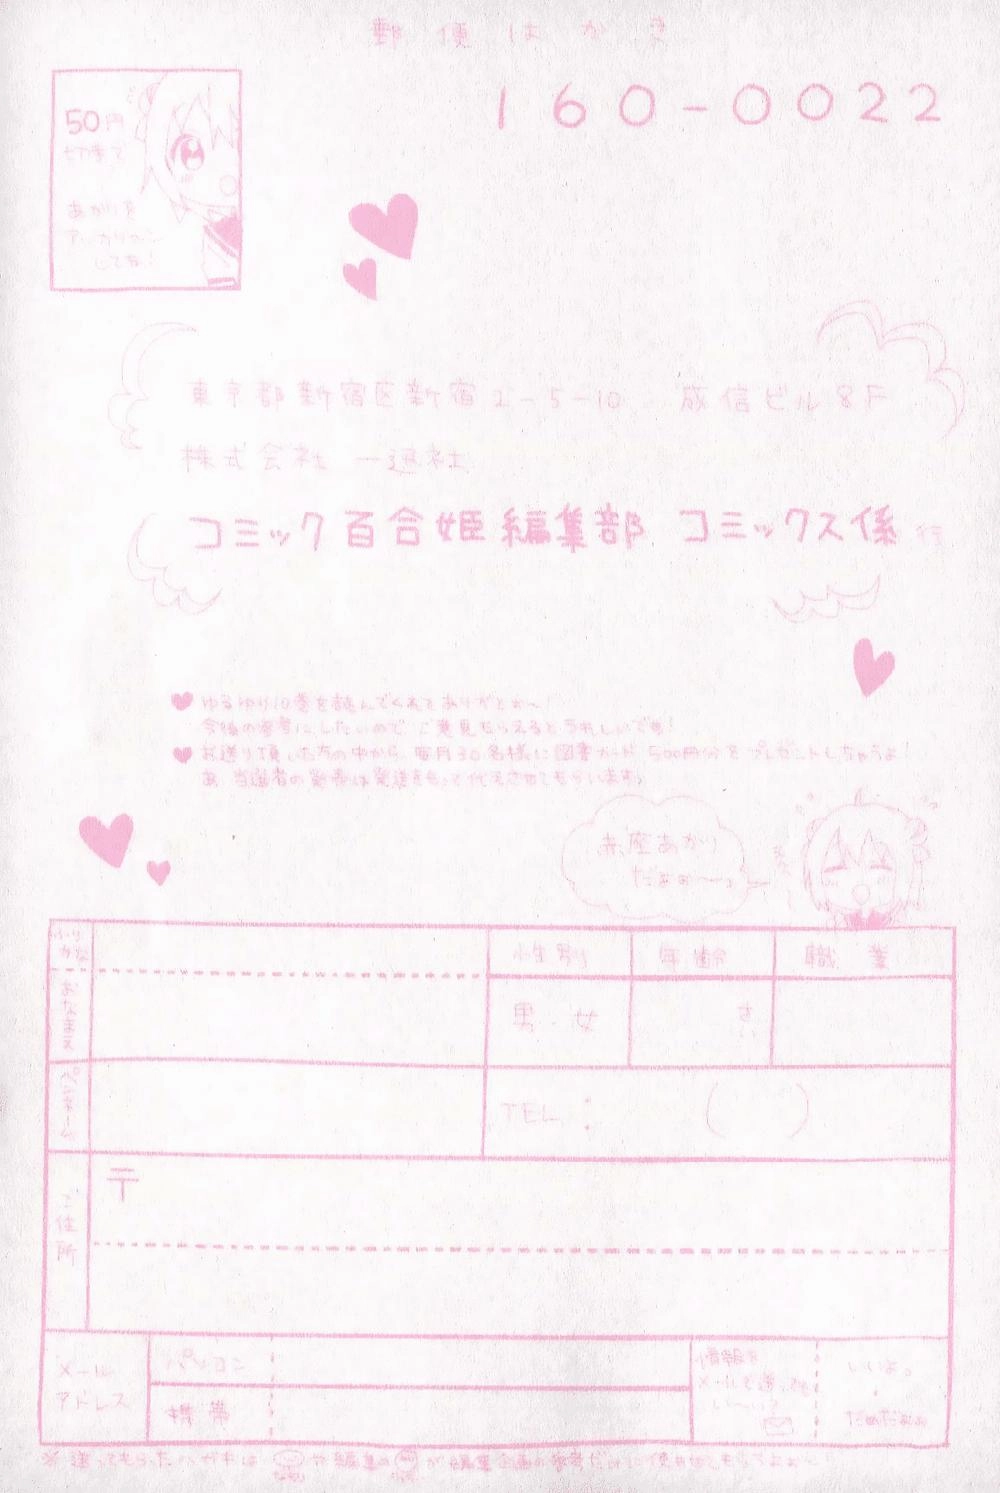 郵便はがき
160-0022
50円
切手で
あかりを
アッカリ〜ン
してね!
東京都新宿区新宿2-5-10 成信ビル8F
株式会社 一迅社
コミック百合姫編集部 コミックス係 行
ゆるゆり10巻を読んでくれてありがとぉ〜!
今後の参考にしたいので、ご意見もらえるとうれしいです!
お送り頂いた方の中から、毎月30名様に図書カード500円分をプレゼントしちゃうよ!
あ、当選者の発表は発送をもって代えさせてもらいます。
赤座あかり
だよぉ〜っ
ふりがな
おなまえ
性別
年齢
職業
男・女
さい
ペンネーム
TEL: ( )
ご住所
〒
メール
アドレス
パソコン
携帯
情報を
メールで送っても
い〜い?
いいよ。
・
だめだよぉ
※送ってもらったハガキは なもり や編集の が編集企画の参考だけに使わせてもらうよぉ〜